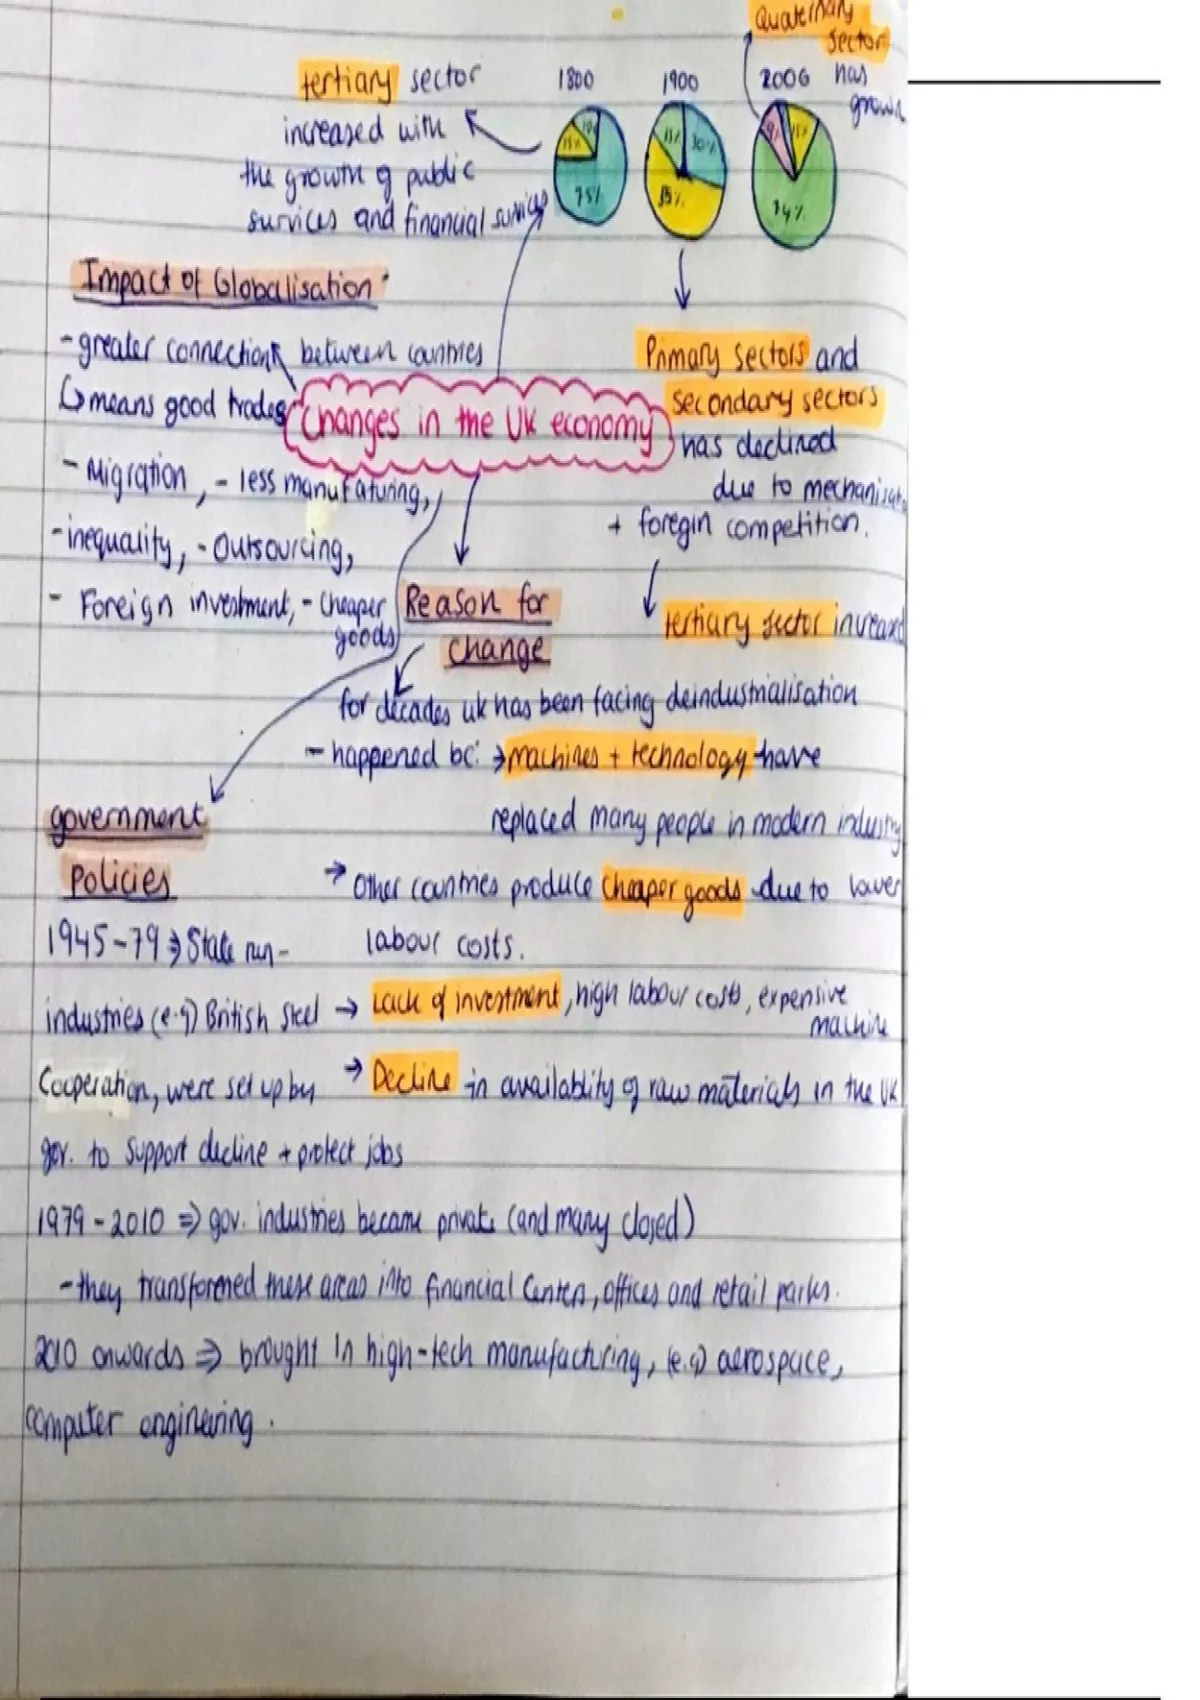 Quaternary
sector
has
grown
tertiary sector
increased with
the growth of public
survices and financial survices
1800
1900
2006
10%
15%
75%
15%
30%
55%
9%
15%
74%
Impact of Globalisation
- greater connection between countries
↳ means good trades
- Migration, - less manufaturing,
- inequality, - Outsourcing,
- Foreign investment, - cheaper
goods
Changes in the UK economy
Primary sectors and
secondary sectors
has declined
due to
+ foregin competition.
tertiary sector
Reason for
change
for decades uk has been facing deindustrialisation
- happened bc: → machines + technology have
replaced many people in modern industry
→ Other countries produce cheaper goods due to lower
labour costs.
→ Lack of investment, high labour costs, expensive
machine
→ Decline in availablity of raw materials in the UK
government
Policies
1945-79 ⇒ State run-
industries (e.g) British Steel
Cooperation, were set up by
gov. to support decline + protect jobs
1979-2010 ⇒ gov. industries became private (and many closed)
- they transformed these areas into financial centers, offices and retail parks.
2010 onwards ⇒ brought in high-tech manufacturing, (e.g) aerospace,
computer enginering.